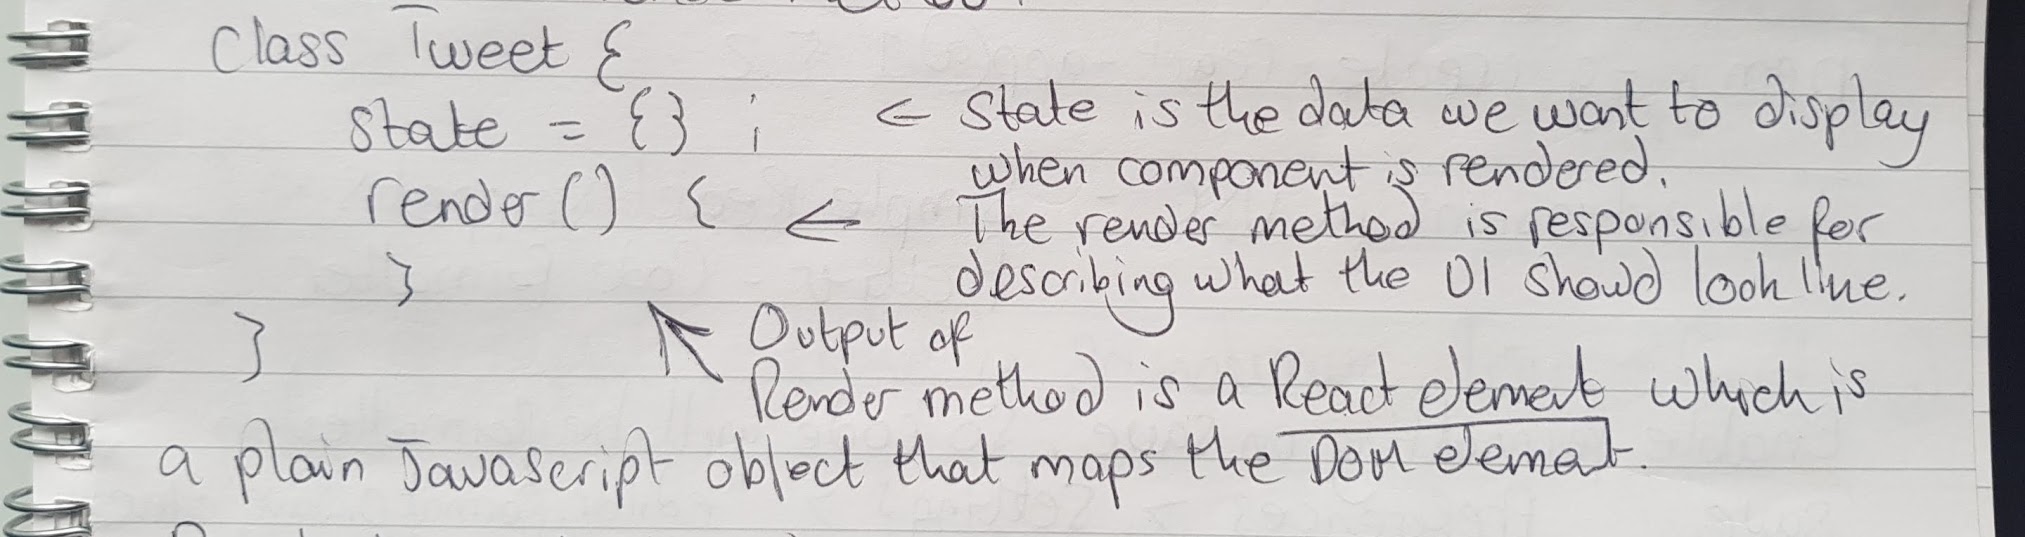 Class Tweet {
state = {} ; ← State is the data we want to display
when component is rendered.
render() { ← The render method is responsible for
describing what the UI should look like.
}
} ↖ Output of
Render method is a React element which is
a plain Javascript object that maps the DOM element.